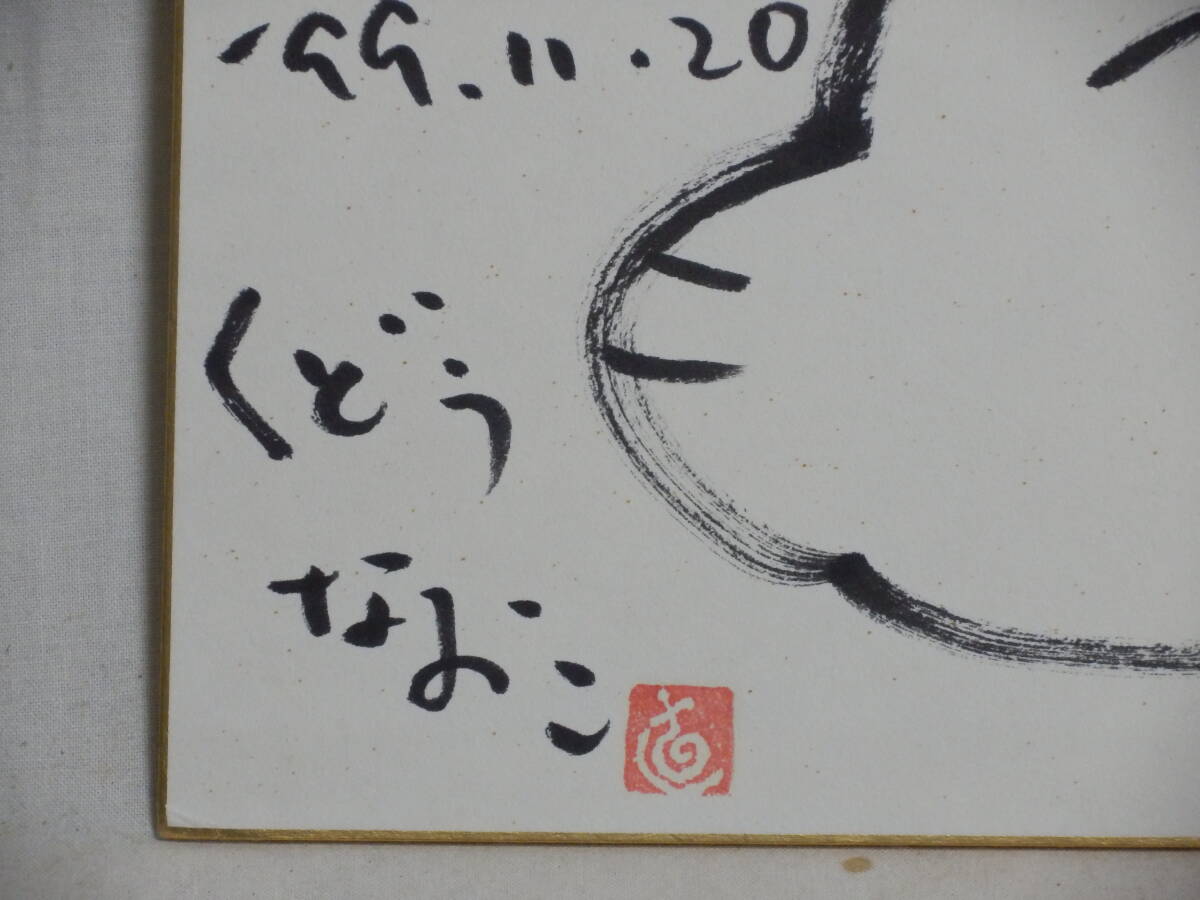 '99.11.20
くどう
なおこ